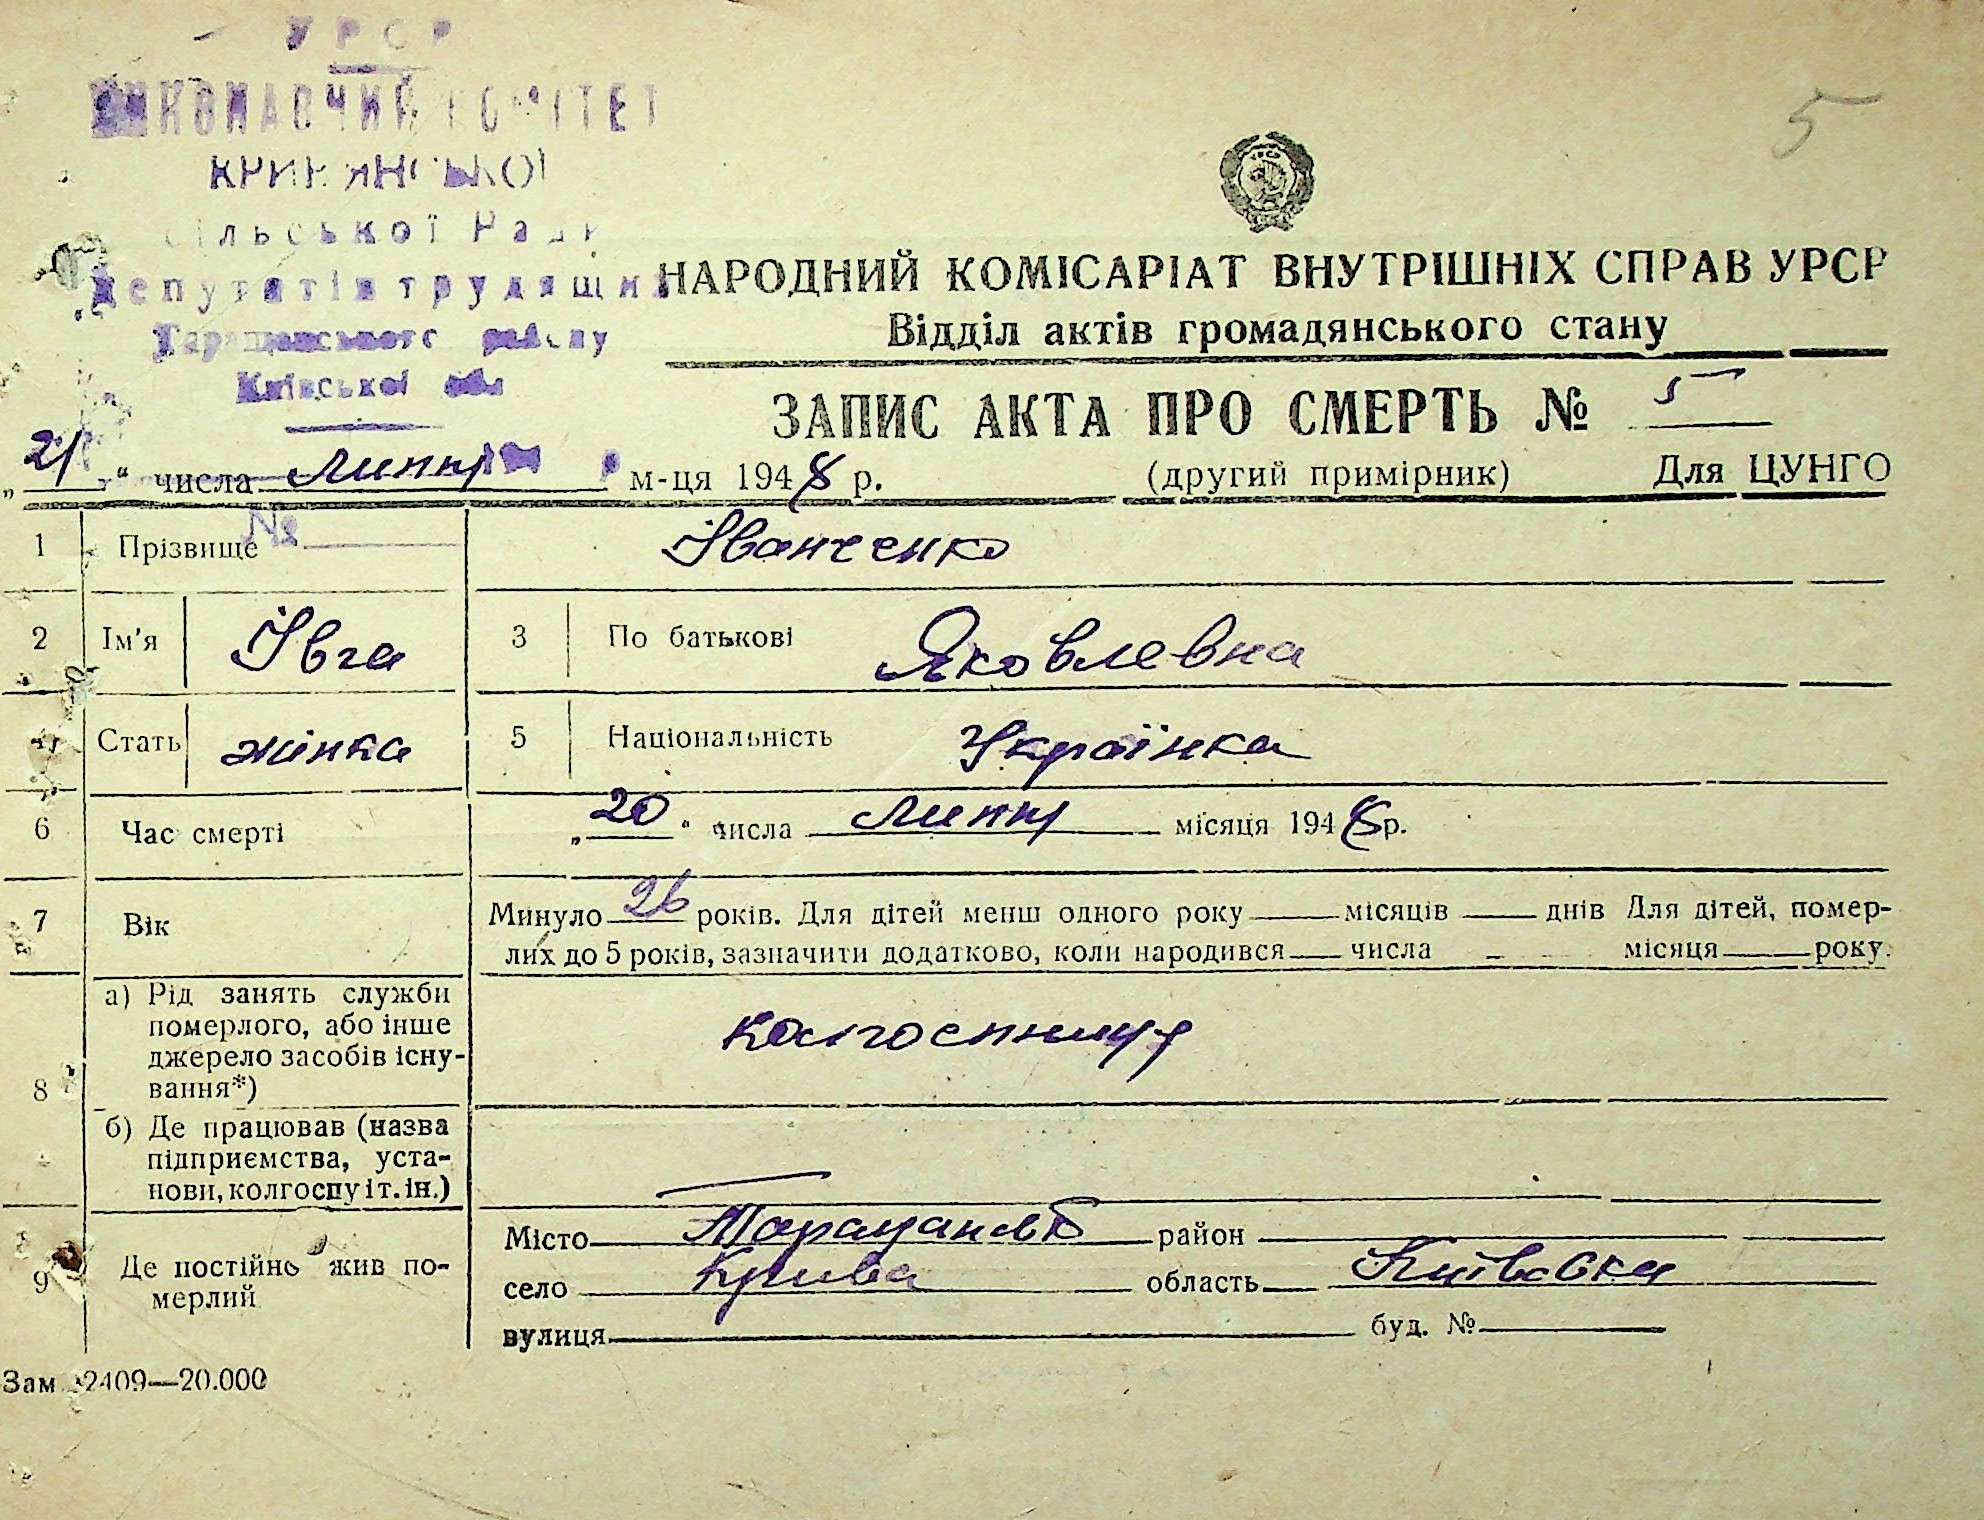 УРСР
ВИКОНАВЧИЙ КОМІТЕТ
5
КРИВ'ЯНСЬКОЇ
сільської Ради
депутатів трудящих
НАРОДНИЙ КОМІСАРІАТ ВНУТРІШНІХ СПРАВ УРСР
Таращанського району
Відділ актів громадянського стану
Київської обл
ЗАПИС АКТА ПРО СМЕРТЬ № 5
„21“ числа Липня м-ця 1948 р. (другий примірник) Для ЦУНГО
№
1 Прізвище Іванченко
2 Ім'я Івга 3 По батькові Яковлевна
4 Стать жінка 5 Національність Українка
6 Час смерті „20“ числа Липня місяця 1948 р.
7 Вік Минуло 26 років. Для дітей менш одного року місяців днів Для дітей, помер-
лих до 5 років, зазначити додатково, коли народився числа місяця року.
8 а) Рід занять служби
померлого, або інше
джерело засобів існу-
вання*) колгоспниця
б) Де працював (назва
підприємства, уста-
нови, колгоспу і т. ін.)
9 Де постійно жив по-
мерлий
Місто Таращанськ район
село Крива область Київська
вулиця буд. №
Зам 2409—20.000